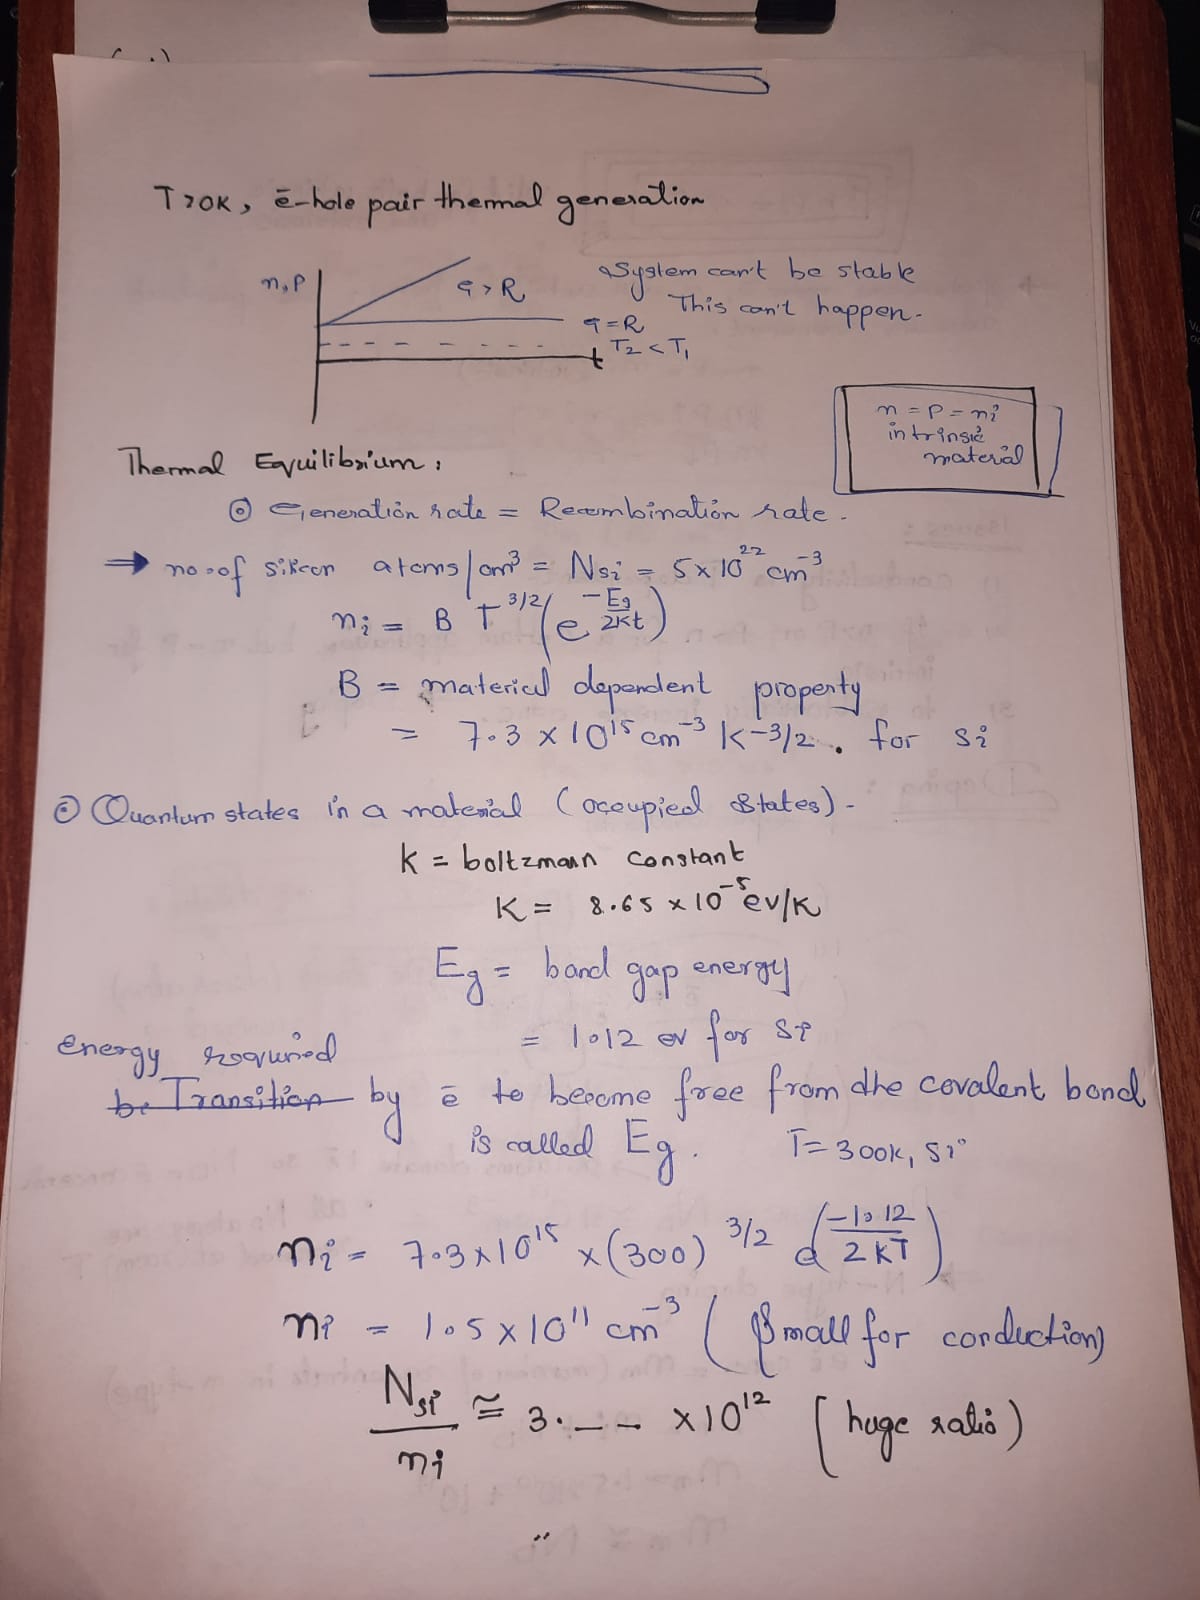 T>0K, ē-hole pair thermal generation
n,P
G>R
System can't be stable
This can't happen.
G=R
T2 < T1
t
n = P = ni
intrinsic
material
Thermal Equilibrium:
⊙ Generation rate = Recombination rate.
→ no. of silicon atoms/cm³ = Nsi = 5 x 10²² cm⁻³
ni = B T^3/2 (e^(-Eg/2kt))
B = material dependent property
= 7.3 x 10¹⁵ cm⁻³ K^-3/2. for Si
⊙ Quantum states in a material (occupied states) -
K = boltzmann constant
K = 8.65 x 10⁻⁵ ev/K
Eg = band gap energy
= 1.12 ev for Si
energy required
be Transition by ē to become free from the covalent bond
is called Eg. T = 300k, Si
ni = 7.3 x 10¹⁵ x (300)^3/2 e^(-1.12/2kT)
ni = 1.5 x 10¹¹ cm⁻³ (Small for conduction)
Nsi/ni ≅ 3.-- x 10¹² (huge ratio)